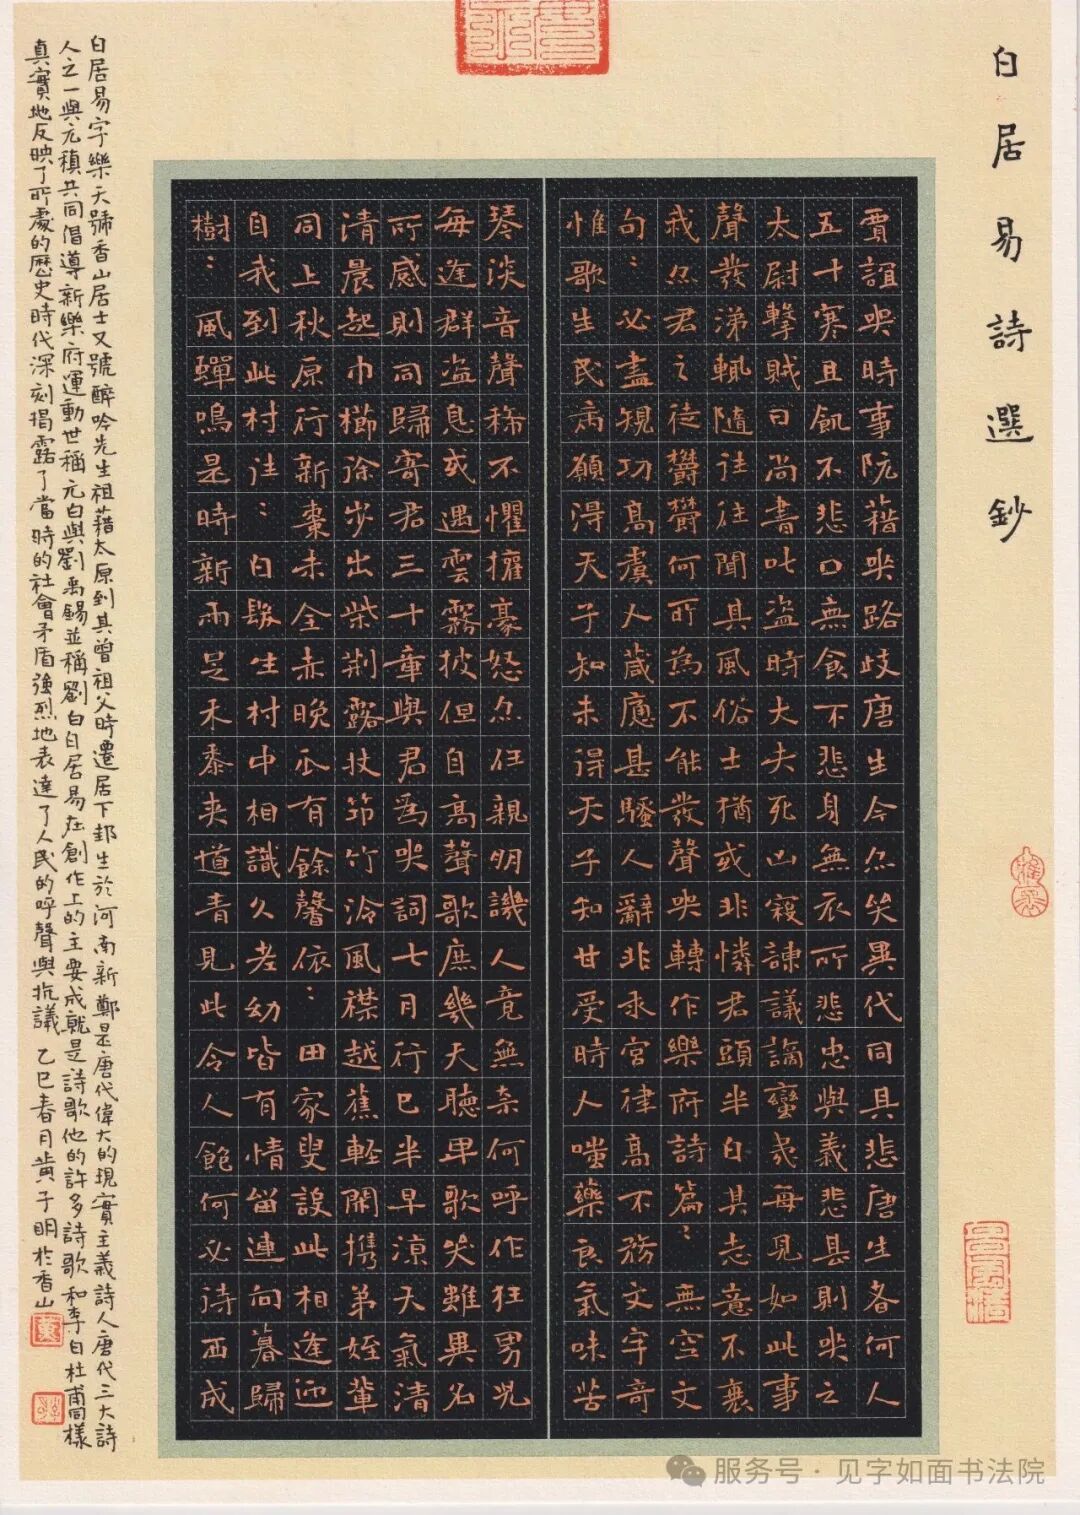 白居易詩選鈔
賈誼哭時事阮藉哭路歧唐生今亦哭異代同其悲唐生者何人
五十寒且飢不悲口無食不悲身無衣所悲忠與義悲甚則哭之
太尉擊賊日尚書叱盜時大夫死凶寇諫議謫蠻夷每見如此事
聲發涕輒隨往往聞其風俗士猶或非憐君頭半白其志竟不衰
我亦君之徒鬱鬱何所為不能發聲哭轉作樂府詩篇:無空文
句:必盡規功高虞人箴應甚騷人辭非求宮律高不務文字奇
惟歌生民病願得天子知未得天子知甘受時人嗤藥良氣味苦
琴淡音聲稀不懼權豪怒亦任親朋譏人竟無奈何呼作狂男兒
每逢群盜息或遇雲霧披但自高聲歌庶幾天聽卑歌哭雖異名
所感則同歸寄君三十章與君為哭詞七月行已半早涼天氣清
清晨起巾櫛徐步出柴荊露杖筇竹冷風襟越蕉輕閑攜弟姪輩
同上秋原行新棗未全赤晚瓜有餘馨依:田家叟設此相逢迎
自我到此村往:白髮生村中相識久老幼皆有情留連向暮歸
樹:風蟬鳴是時新雨足禾黍夾道青見此令人飽何必待西成
白居易字樂天號香山居士又號醉吟先生祖藉太原到其曾祖父時遷居下邽生於河南新鄭是唐代偉大的現實主義詩人唐代三大詩
人之一與元稹共同倡導新樂府運動世稱元白與劉禹錫並稱劉白白居易在創作上的主要成就是詩歌他的許多詩歌和李白杜甫同樣
真實地反映了所處的歷史時代深刻揭露了當時的社會矛盾強烈地表達了人民的呼聲與抗議 乙巳春月黃子明於香山
服务号·见字如面书法院